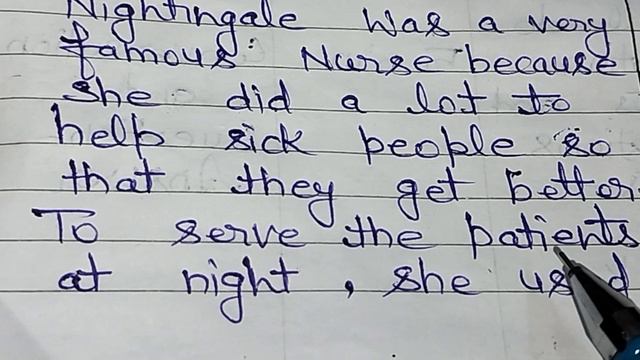 Nightingale was a very
famous Nurse because
she did a lot to
help sick people so
that they get better.
To serve the patients
at night, she used